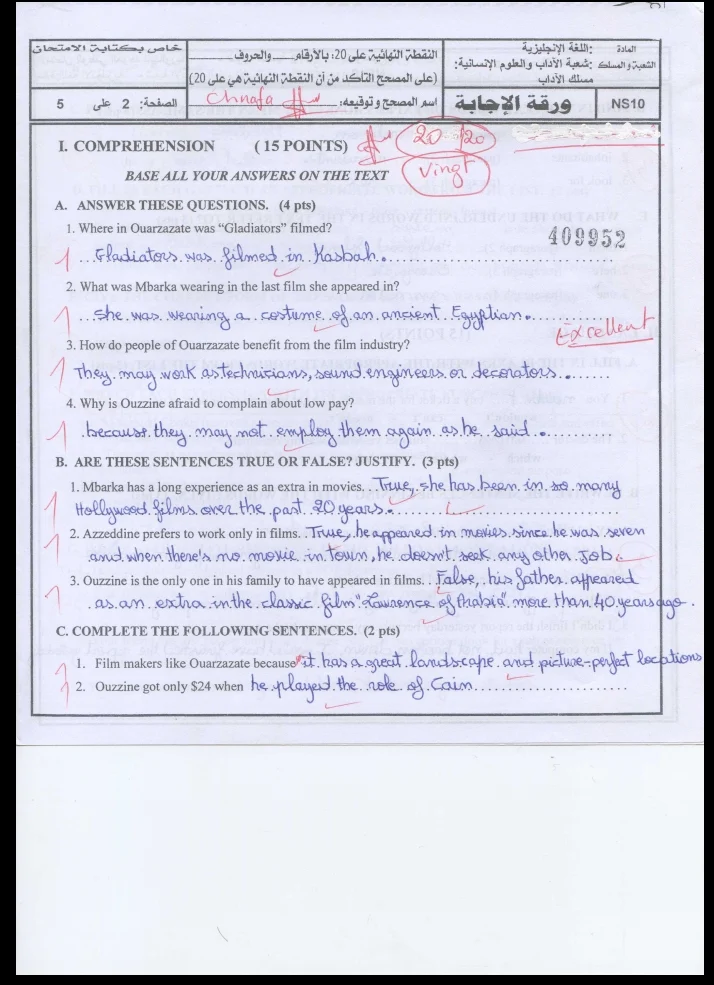 خاص بكتابة الامتحان
النقطة النهائية على 20: بالأرقام ...... والحروف ..........
(على المصحح التأكد من أن النقطة النهائية هي على 20)
المادة :اللغة الإنجليزية
الشعبة والمسلك :شعبة الآداب والعلوم الإنسانية:
مسلك الآداب
الصفحة: 2 على 5
اسم المصحح وتوقيعه: chnafa
ورقة الإجابة
NS10
I. COMPREHENSION (15 POINTS)
20 /20
vingt
BASE ALL YOUR ANSWERS ON THE TEXT
A. ANSWER THESE QUESTIONS. (4 pts)
1. Where in Ouarzazate was “Gladiators” filmed?
409952
1 Gladiators was filmed in Kasbah.
2. What was Mbarka wearing in the last film she appeared in?
1 She was wearing a costume of an ancient Egyptian.
Excellent
3. How do people of Ouarzazate benefit from the film industry?
1 They may work as technicians, sound engineers or decorators.
4. Why is Ouzzine afraid to complain about low pay?
1 because they may not employ them again as he said.
B. ARE THESE SENTENCES TRUE OR FALSE? JUSTIFY. (3 pts)
1. Mbarka has a long experience as an extra in movies. True, she has been in so many
1 Hollywood films over the past 20 years.
2. Azzeddine prefers to work only in films. True, he appeared in movies since he was seven
1 and when there's no movie in town, he doesn't seek any other job.
3. Ouzzine is the only one in his family to have appeared in films. False, his father appeared
1 as an extra in the classic film "Lawrence of Arabia" more than 40 years ago.
C. COMPLETE THE FOLLOWING SENTENCES. (2 pts)
1 1. Film makers like Ouarzazate because it has a great landscape and picture-perfect locations
1 2. Ouzzine got only $24 when he played the role of Cain.